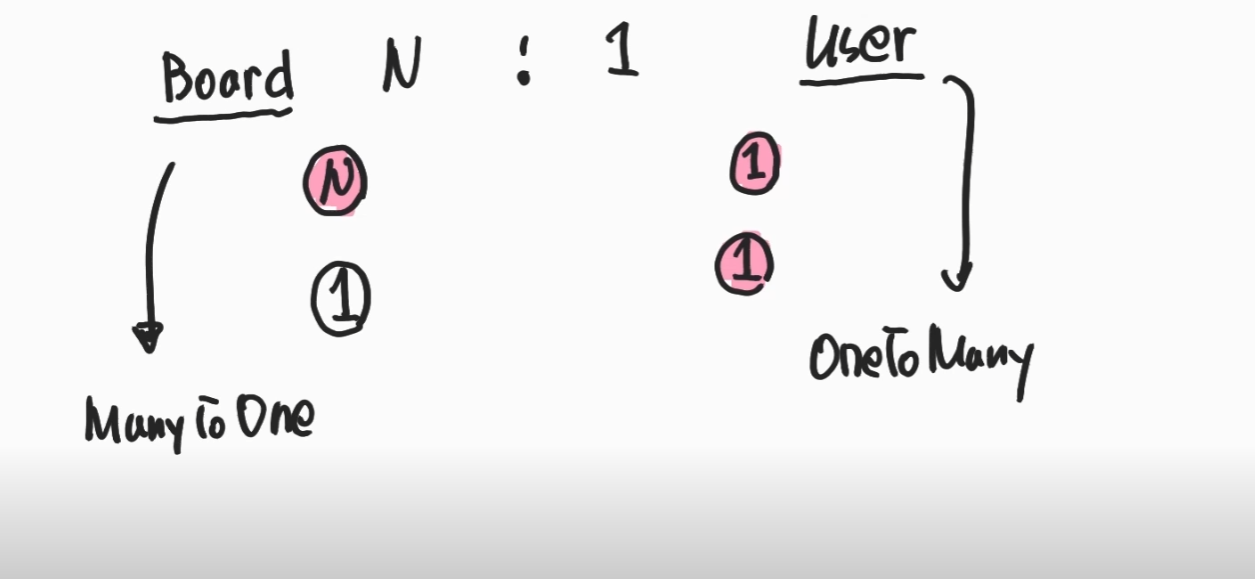 Board N : 1 User
N 1
1 1
ManyToOne OneToMany